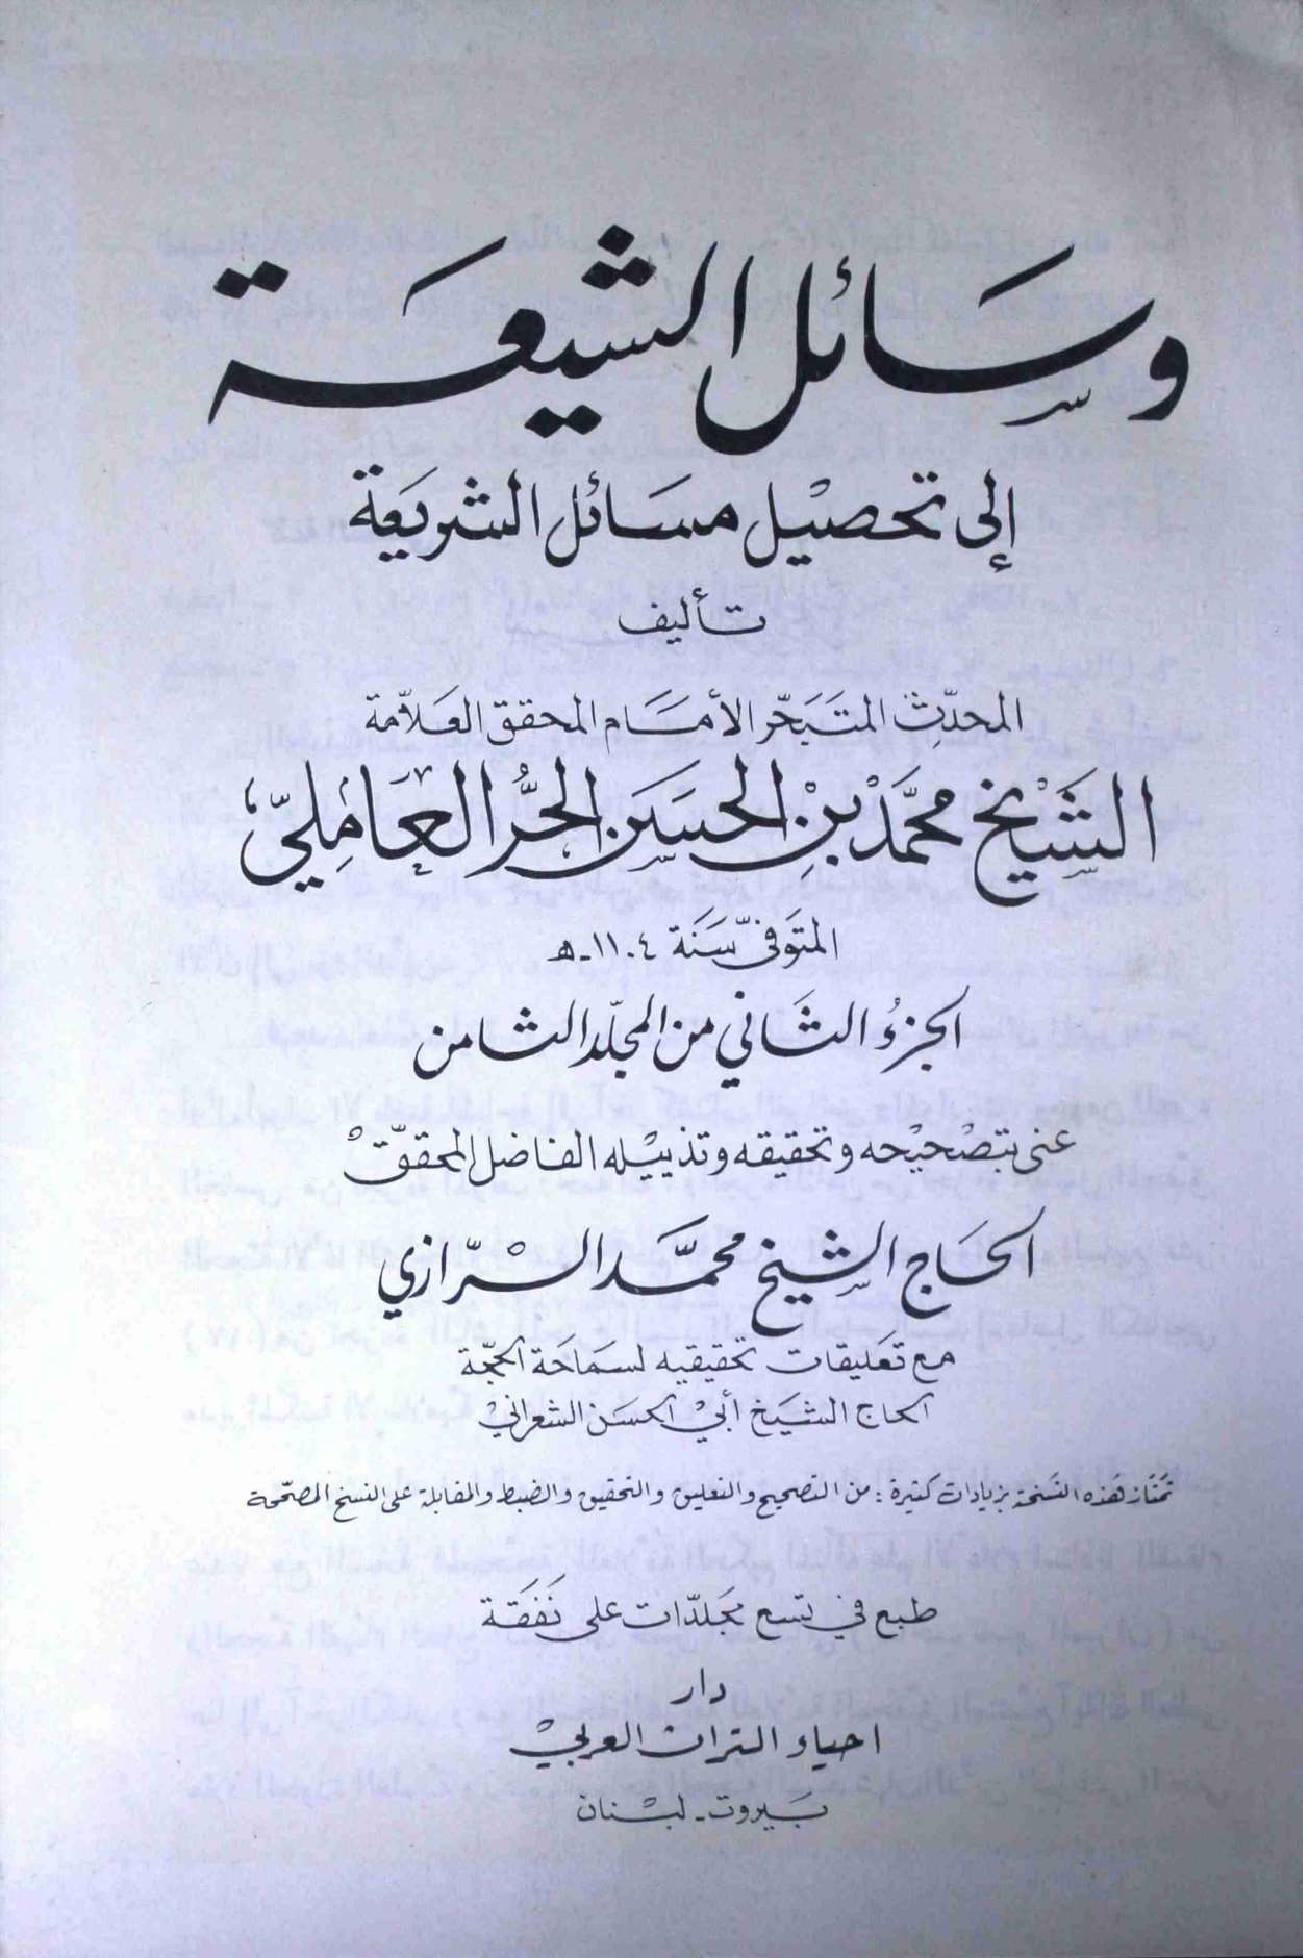 وسائل الشيعة
إلى تحصيل مسائل الشريعة
تأليف
المحدّث المتبحّر الأمام المحقق العلاّمة
الشيخ محمّد بن الحسن الحرّ العامليّ
المتوفّى سنة ١١٠٤ هـ
الجزء الثاني من المجلّد الثامن
عنى بتصحيحه وتحقيقه وتذييله الفاضل المحقّق
الحاج الشيخ محمّد الرّازي
مع تعليقات تحقيقيه لسماحة الحجّة
الحاج الشيخ أبي الحسن الشعراني
تمتاز هذه النسخة بزيادات كثيرة : من التصحيح والتعليق والتحقيق والضبط والمقابلة على النسخ المصحّحة
طبع في تسع مجلّدات على نفقة
دار
احياء التراث العربي
بيروت - لبنان